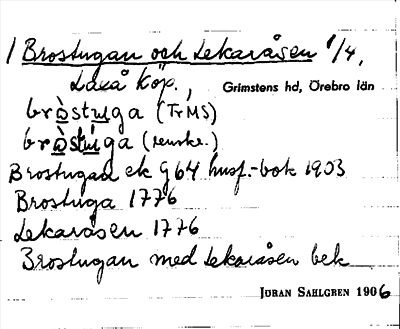 / Brostugan och Lekaråsen 1/4,
Laxå köp., Grimstens hd, Örebro län
bròstuga (TrMS)
bròstúga (renskr.)
Brostugan ek G64 husf.-bok 1903
Brostuga 1776
Lekaråsen 1776
Brostugan med Lekaråsen bek
JÖRAN SAHLGREN 1906